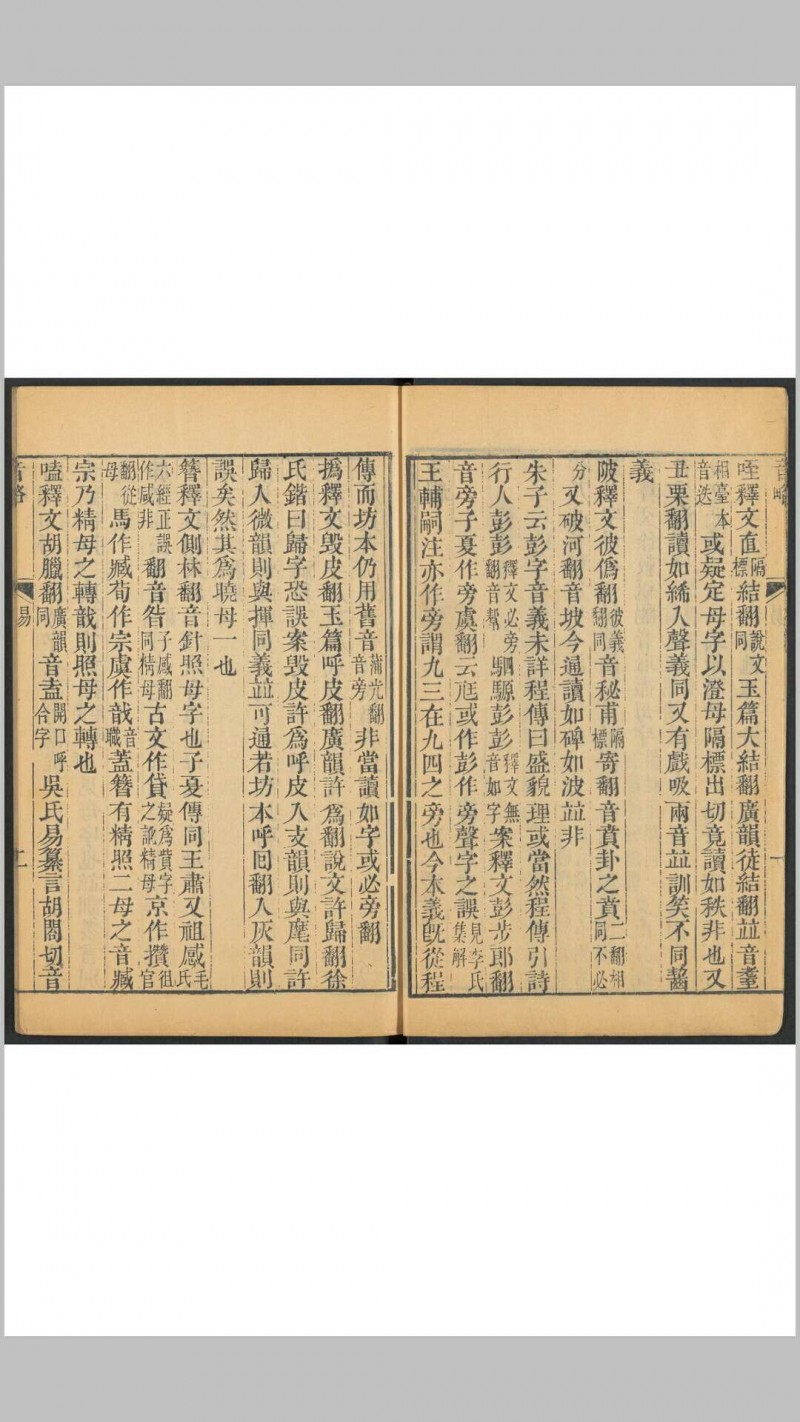 咥釋文直隔標結翻說文同玉篇大結翻廣韻徒結翻竝音耋
相臺本音迭或疑定母字以澄母隔標出切竟讀如秩非也又
丑栗翻讀如絺入聲義同又有戲吸兩音竝訓笑不同齧
義
陂釋文彼僞翻彼義翻同音秘甫隔標寄翻音賁卦之賁二翻相同不必
分又破河翻音坡今通讀如碑如波竝非
朱子云彭字音義未詳程傳曰盛貌理或當然程傳引詩
行人彭彭釋文必旁翻音幫駟騵彭彭釋文無音如字案釋文彭步郎翻
音旁子夏作旁虞翻云尫或作彭作旁聲字之誤見李氏集解
王輔嗣注亦作旁謂九三在九四之旁也今本義旣從程
音略
一
傳而坊本仍用舊音蒲光翻音旁非當讀如字或必旁翻
撝釋文毀皮翻玉篇呼皮翻廣韻許爲翻說文許歸翻徐
氏鍇曰歸字恐誤案毀皮許爲呼皮入支韻則與麾同許
歸入微韻則與揮同義竝可通若坊本呼回翻入灰韻則
誤矣然其爲曉母一也
簪釋文側林翻音針照母字也子夏傳同王肅又祖感毛氏
六經正誤作咸非翻音昝子感翻同精母古文作貸疑爲貲字之訛精母京作攢徂官
翻從母馬作臧荀作宗虞作戠音職蓋簪有精照二母之音臧
宗乃精母之轉戠則照母之轉也
嗑釋文胡臘翻廣韻同音盍開口呼合字吳氏易纂言胡閤切音
音略
易
二